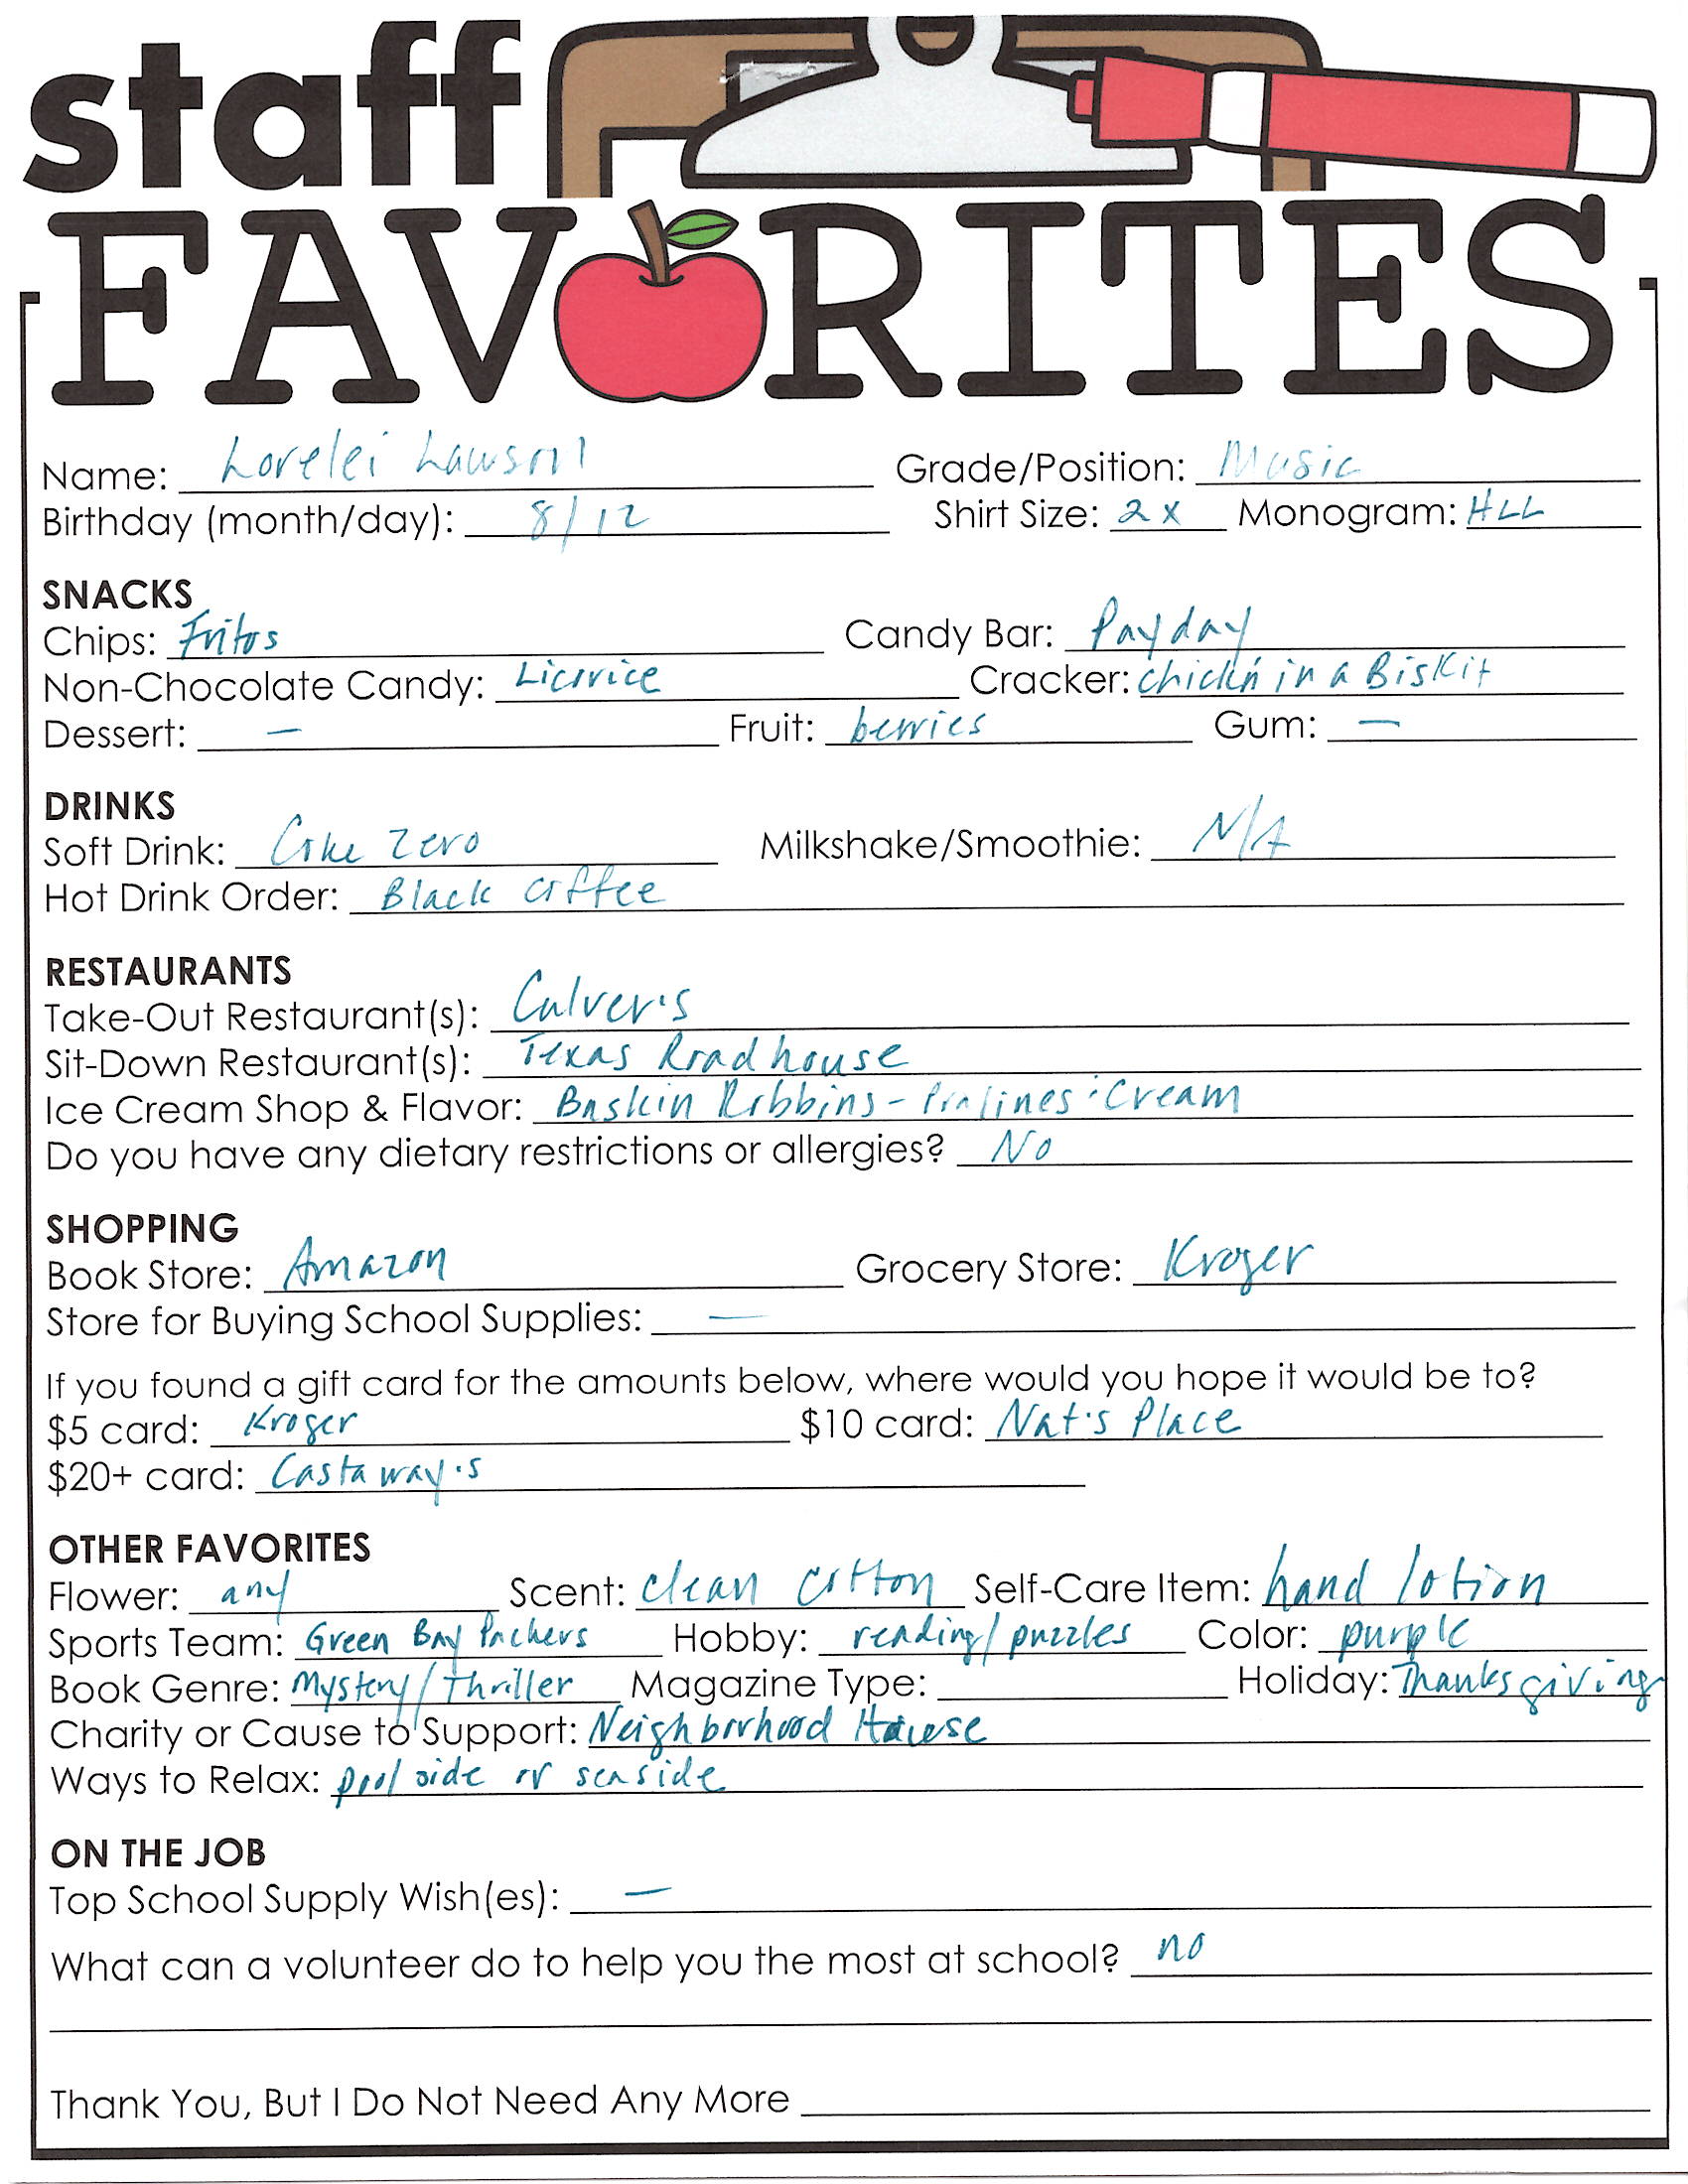 staff
FAVORITES
Name: Lorelei Lawson Grade/Position: Music
Birthday (month/day): 8/12 Shirt Size: 2x Monogram: HLL
SNACKS
Chips: Fritos Candy Bar: Payday
Non-Chocolate Candy: Licorice Cracker: chick'n in a Biskit
Dessert: — Fruit: berries Gum: —
DRINKS
Soft Drink: Coke Zero Milkshake/Smoothie: N/A
Hot Drink Order: Black coffee
RESTAURANTS
Take-Out Restaurant(s): Culver's
Sit-Down Restaurant(s): Texas Roadhouse
Ice Cream Shop & Flavor: Baskin Robbins - Pralines : Cream
Do you have any dietary restrictions or allergies? No
SHOPPING
Book Store: Amazon Grocery Store: Kroger
Store for Buying School Supplies: —
If you found a gift card for the amounts below, where would you hope it would be to?
$5 card: Kroger $10 card: Nat's Place
$20+ card: Castaway's
OTHER FAVORITES
Flower: any Scent: clean cotton Self-Care Item: hand lotion
Sports Team: Green Bay Packers Hobby: reading/puzzles Color: purple
Book Genre: Mystery/Thriller Magazine Type: Holiday: Thanksgiving
Charity or Cause to Support: Neighborhood House
Ways to Relax: pool side or seaside
ON THE JOB
Top School Supply Wish(es): —
What can a volunteer do to help you the most at school? no
Thank You, But I Do Not Need Any More